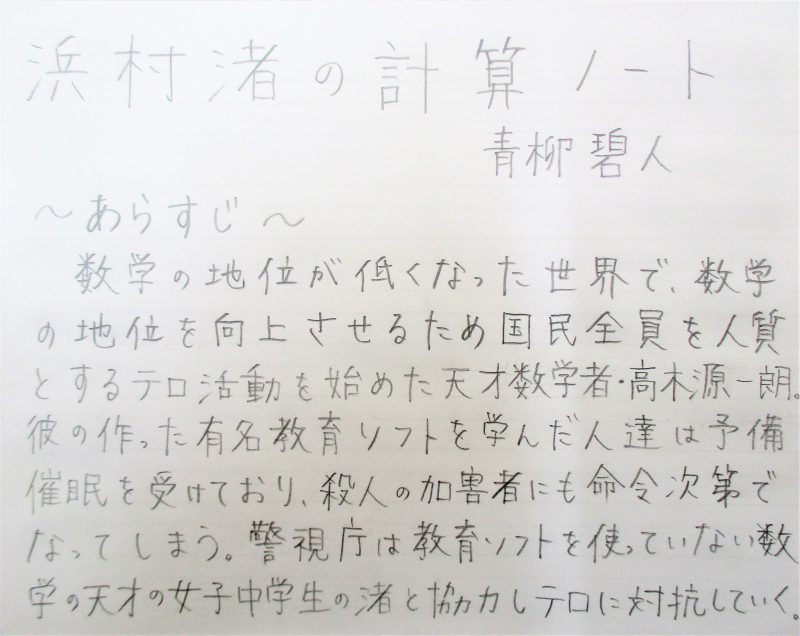 浜村渚の計算ノート
青柳碧人
～あらすじ～
数学の地位が低くなった世界で、数学
の地位を向上させるため国民全員を人質
とするテロ活動を始めた天才数学者・高木源一朗。
彼の作った有名教育ソフトを学んだ人達は予備
催眠を受けており、殺人の加害者にも命令次第で
なってしまう。警視庁は教育ソフトを使っていない数
学の天才の女子中学生の渚と協力しテロに対抗していく。